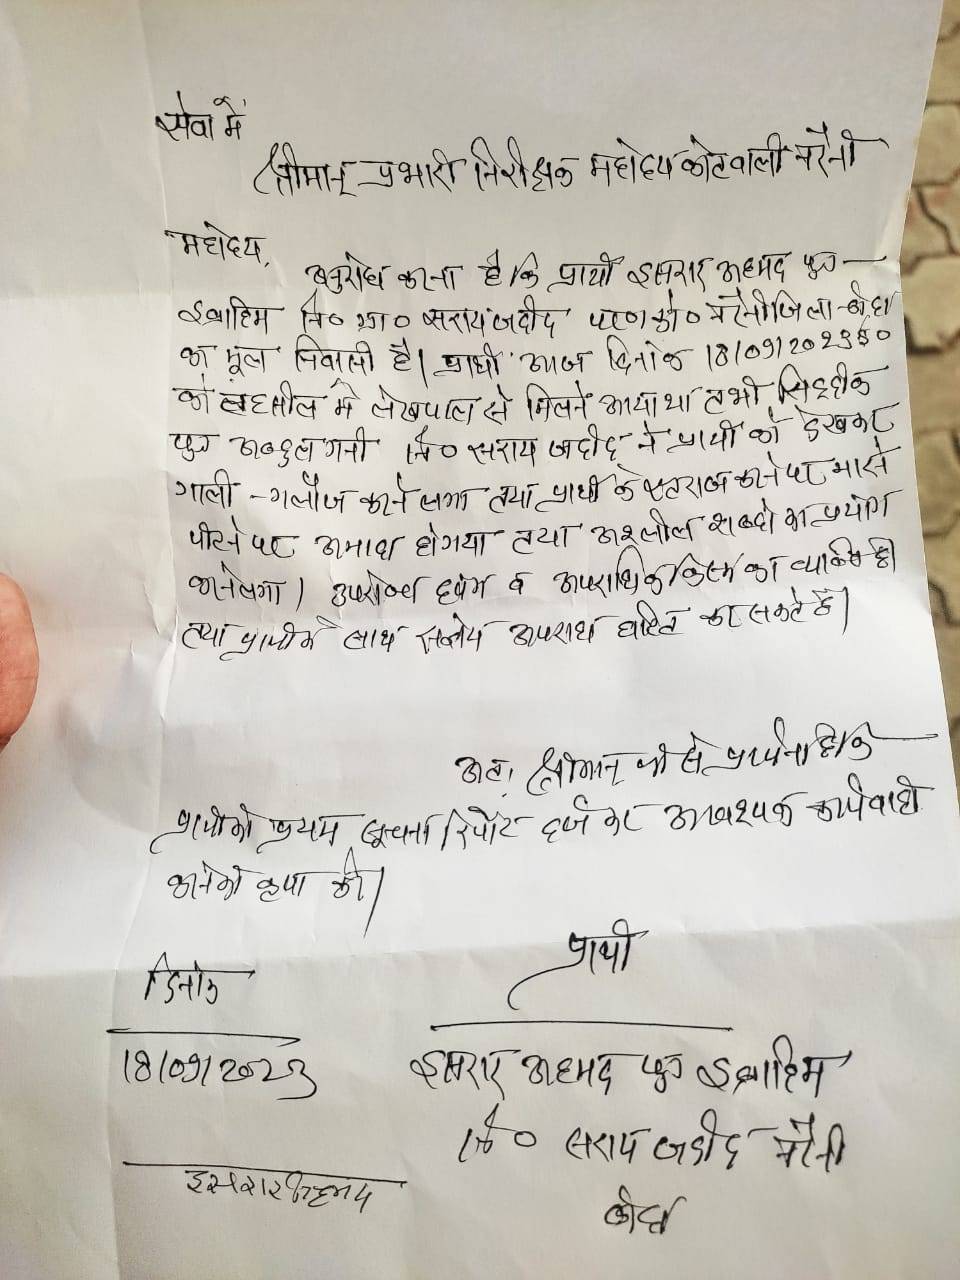 सेवा में
श्रीमान् प्रभारी निरीक्षक महोदय कोतवाली नरैनी
महोदय,
अनुरोध करना है कि प्रार्थी इसरार अहमद पुत्र
इब्राहिम नि० ग्रा० सराय जदीद को० नरैनी जिला-बाँदा
का मूल निवासी है। प्रार्थी आज दिनांक 18/09/2023 ई०
को तहसील में लेखपाल से मिलने आया था तभी सिद्दीक
पुत्र अब्दुल गनी नि० सराय जदीद ने प्रार्थी को देखकर
गाली-गलौज करने लगा तथा प्रार्थी के एतराज करने पर मारने
पीटने पर अमादा हो गया तथा अश्लील शब्दो का प्रयोग
करने लगा। उपरोक्त दबंग व अपराधिक किस्म का व्यक्ति है।
तथा प्रार्थी के साथ अपराध घटित कर सकते हैं।
अतः श्रीमान् जी से प्रार्थना है कि
प्रार्थी को प्रथम सूचना रिपोर्ट दर्ज कर आवश्यक कार्यवाही
करने की कृपा करें।
दिनांक
प्रार्थी
18/09/2023
इसरार अहमद पुत्र इब्राहिम
नि० सराय जदीद नरैनी
इसरार अहमद
बाँदा